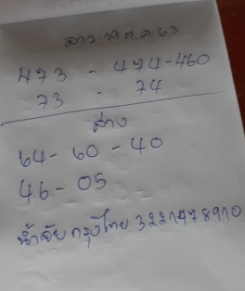 ลาว 19 ต.ค 63
473 - 474-460
73 - 74
ล่าง
64- 60 - 40
46 - 05
น้ำใจ กรุงไทย 3221478910